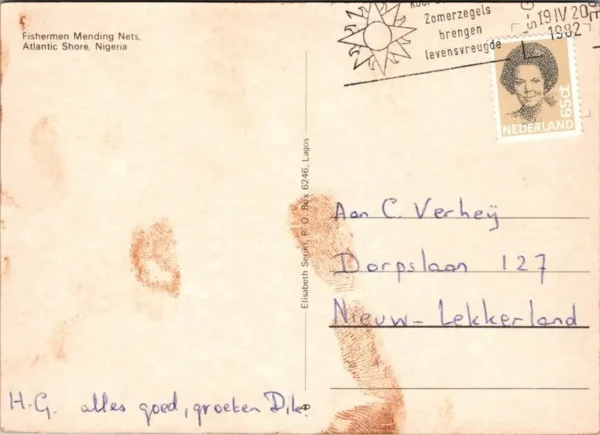 Fishermen Mending Nets,
Atlantic Shore, Nigeria
Zomerzegels
brengen
levensvreugde
19 IV 20
1982
NEDERLAND
65ct
Elisabeth Seglri, P. O. Box 6246, Lagos
Aan C. Verheij
Dorpslaan 127
Nieuw-Lekkerland
H.G. alles goed, groeten Dik.